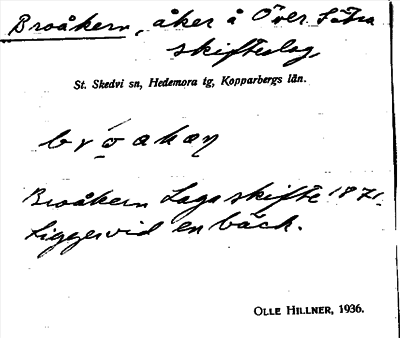 Broåkern, åker å Över Sätra
skifteslag,
St. Skedvi sn, Hedemora tg, Kopparbergs län.
Broåkern Laga skifte 1871.
Ligger vid en bäck.
OLLE HILLNER, 1936.